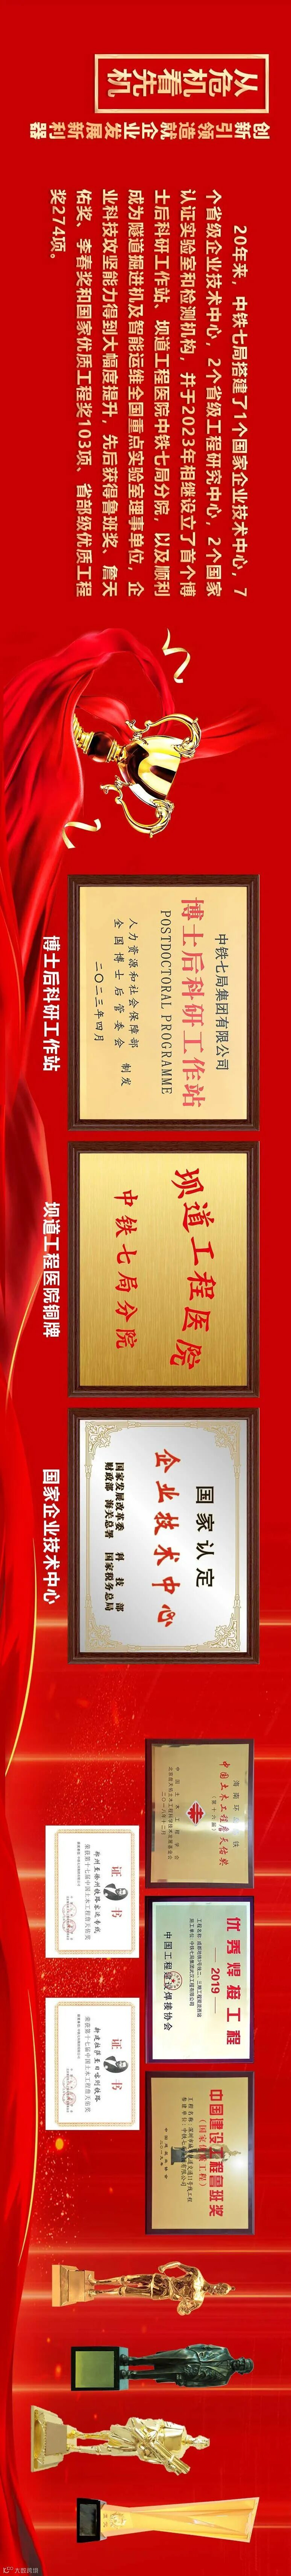 从危机看先机
创新引领造就企业发展新利器
20年来，中铁七局搭建了1个国家企业技术中心，7
个省级企业技术中心，2个省级工程研究中心，2个国家
认证实验室和检测机构，并于2023年相继设立了首个博
士后科研工作站、坝道工程医院中铁七局分院，以及顺利
成为隧道掘进机及智能运维全国重点实验室理事单位，企
业科技攻坚能力得到大幅度提升，先后获得鲁班奖、詹天
佑奖、李春奖和国家优质工程奖103项、省部级优质工程
奖274项。
中铁七局集团有限公司
博士后科研工作站
POSTDOCTORAL PROGRAMME
人力资源和社会保障部
全国博士后管委会
制发
二〇二三年四月
博士后科研工作站
坝道工程医院
中铁七局分院
坝道工程医院铜牌
国家认定
企业技术中心
国家发展改革委 科技部
财政部 海关总署 国家税务总局
国家企业技术中心
海南环岛高铁
中国土木工程詹天佑奖
（第十六届）
中国土木工程学会
二〇一八年十二月
优秀焊接工程
2019
中国工程建设焊接协会
中国建设工程鲁班奖
（国家优质工程）
证书
荣获第十七届中国土木工程詹天佑奖
证书
新建拉萨至日喀则铁路
荣获第十七届中国土木工程詹天佑奖
大数跨境